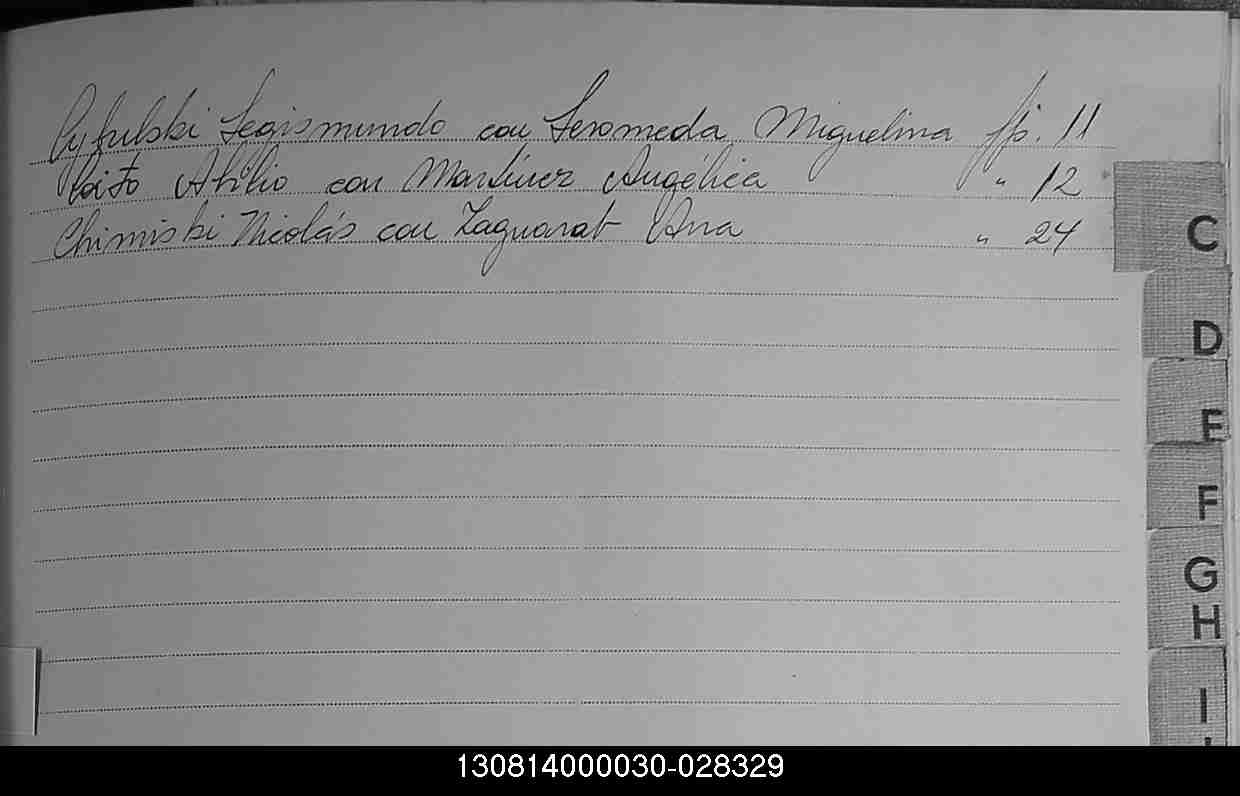 Segismundo con Seromeda Miguelina fp. 11
Atilio con Martínez Angélica " 12
Chimiski Nicolás con Zaguarat Ana " 24
C
D
E
F
G
H
I
130814000030-028329